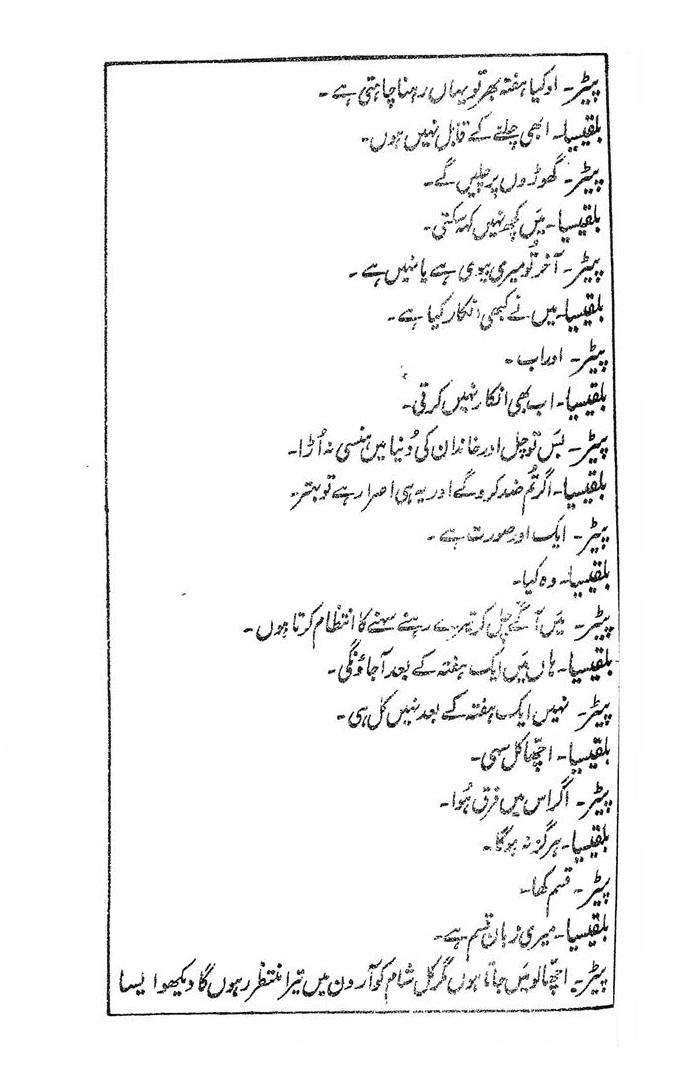 پیٹر۔ اوکیا ہفتہ بھر تو یہاں رہنا چاہتی ہے۔
بلقیسیا۔ ابھی چلنے کے قابل نہیں ہوں۔
پیٹر۔ گھوڑوں پر چلیں گے۔
بلقیسیا۔ میَں کچھ نہیں کہہ سکتی۔
پیٹر۔ آخر تُو میری بیوی ہے یا نہیں ہے۔
بلقیسیا۔ میں نے کبھی انکار کیا ہے۔
پیٹر۔ اور اب۔
بلقیسیا۔ اب بھی انکار نہیں کرتی۔
پیٹر۔ بسَ تو چل اور خاندان کی دُنیا میں ہنسی نہ اُڑا۔
بلقیسیا۔ اگر تُم ضد کروگے اور یہ ہی اصرار ہے تو بہتر۔
پیٹر۔ ایک اور صورت ہے۔
بلقیسیا۔ وہ کیا۔
پیٹر۔ میَں آگے چل کر تیرے رہنے سہنے کا انتظام کرتا ہوں۔
بلقیسیا۔ ہاں میَں ایک ہفتہ کے بعد آجاؤنگی۔
پیٹر۔ نہیں ایک ہفتہ کے بعد نہیں کل ہی۔
بلقیسیا۔ اچھّا کل سہی۔
پیٹر۔ اگر اس میں فرق ہُوا۔
بلقیسیا۔ ہرگز نہ ہوگا۔
پیٹر۔ قسم کھا۔
بلقیسیا۔ میری زبان قسم ہے۔
پیٹر۔ اچھّا لو میَں جاتا ہوں مگر کل شام کو آرون میں تیرا منتظر رہوں گا دیکھو ایسا